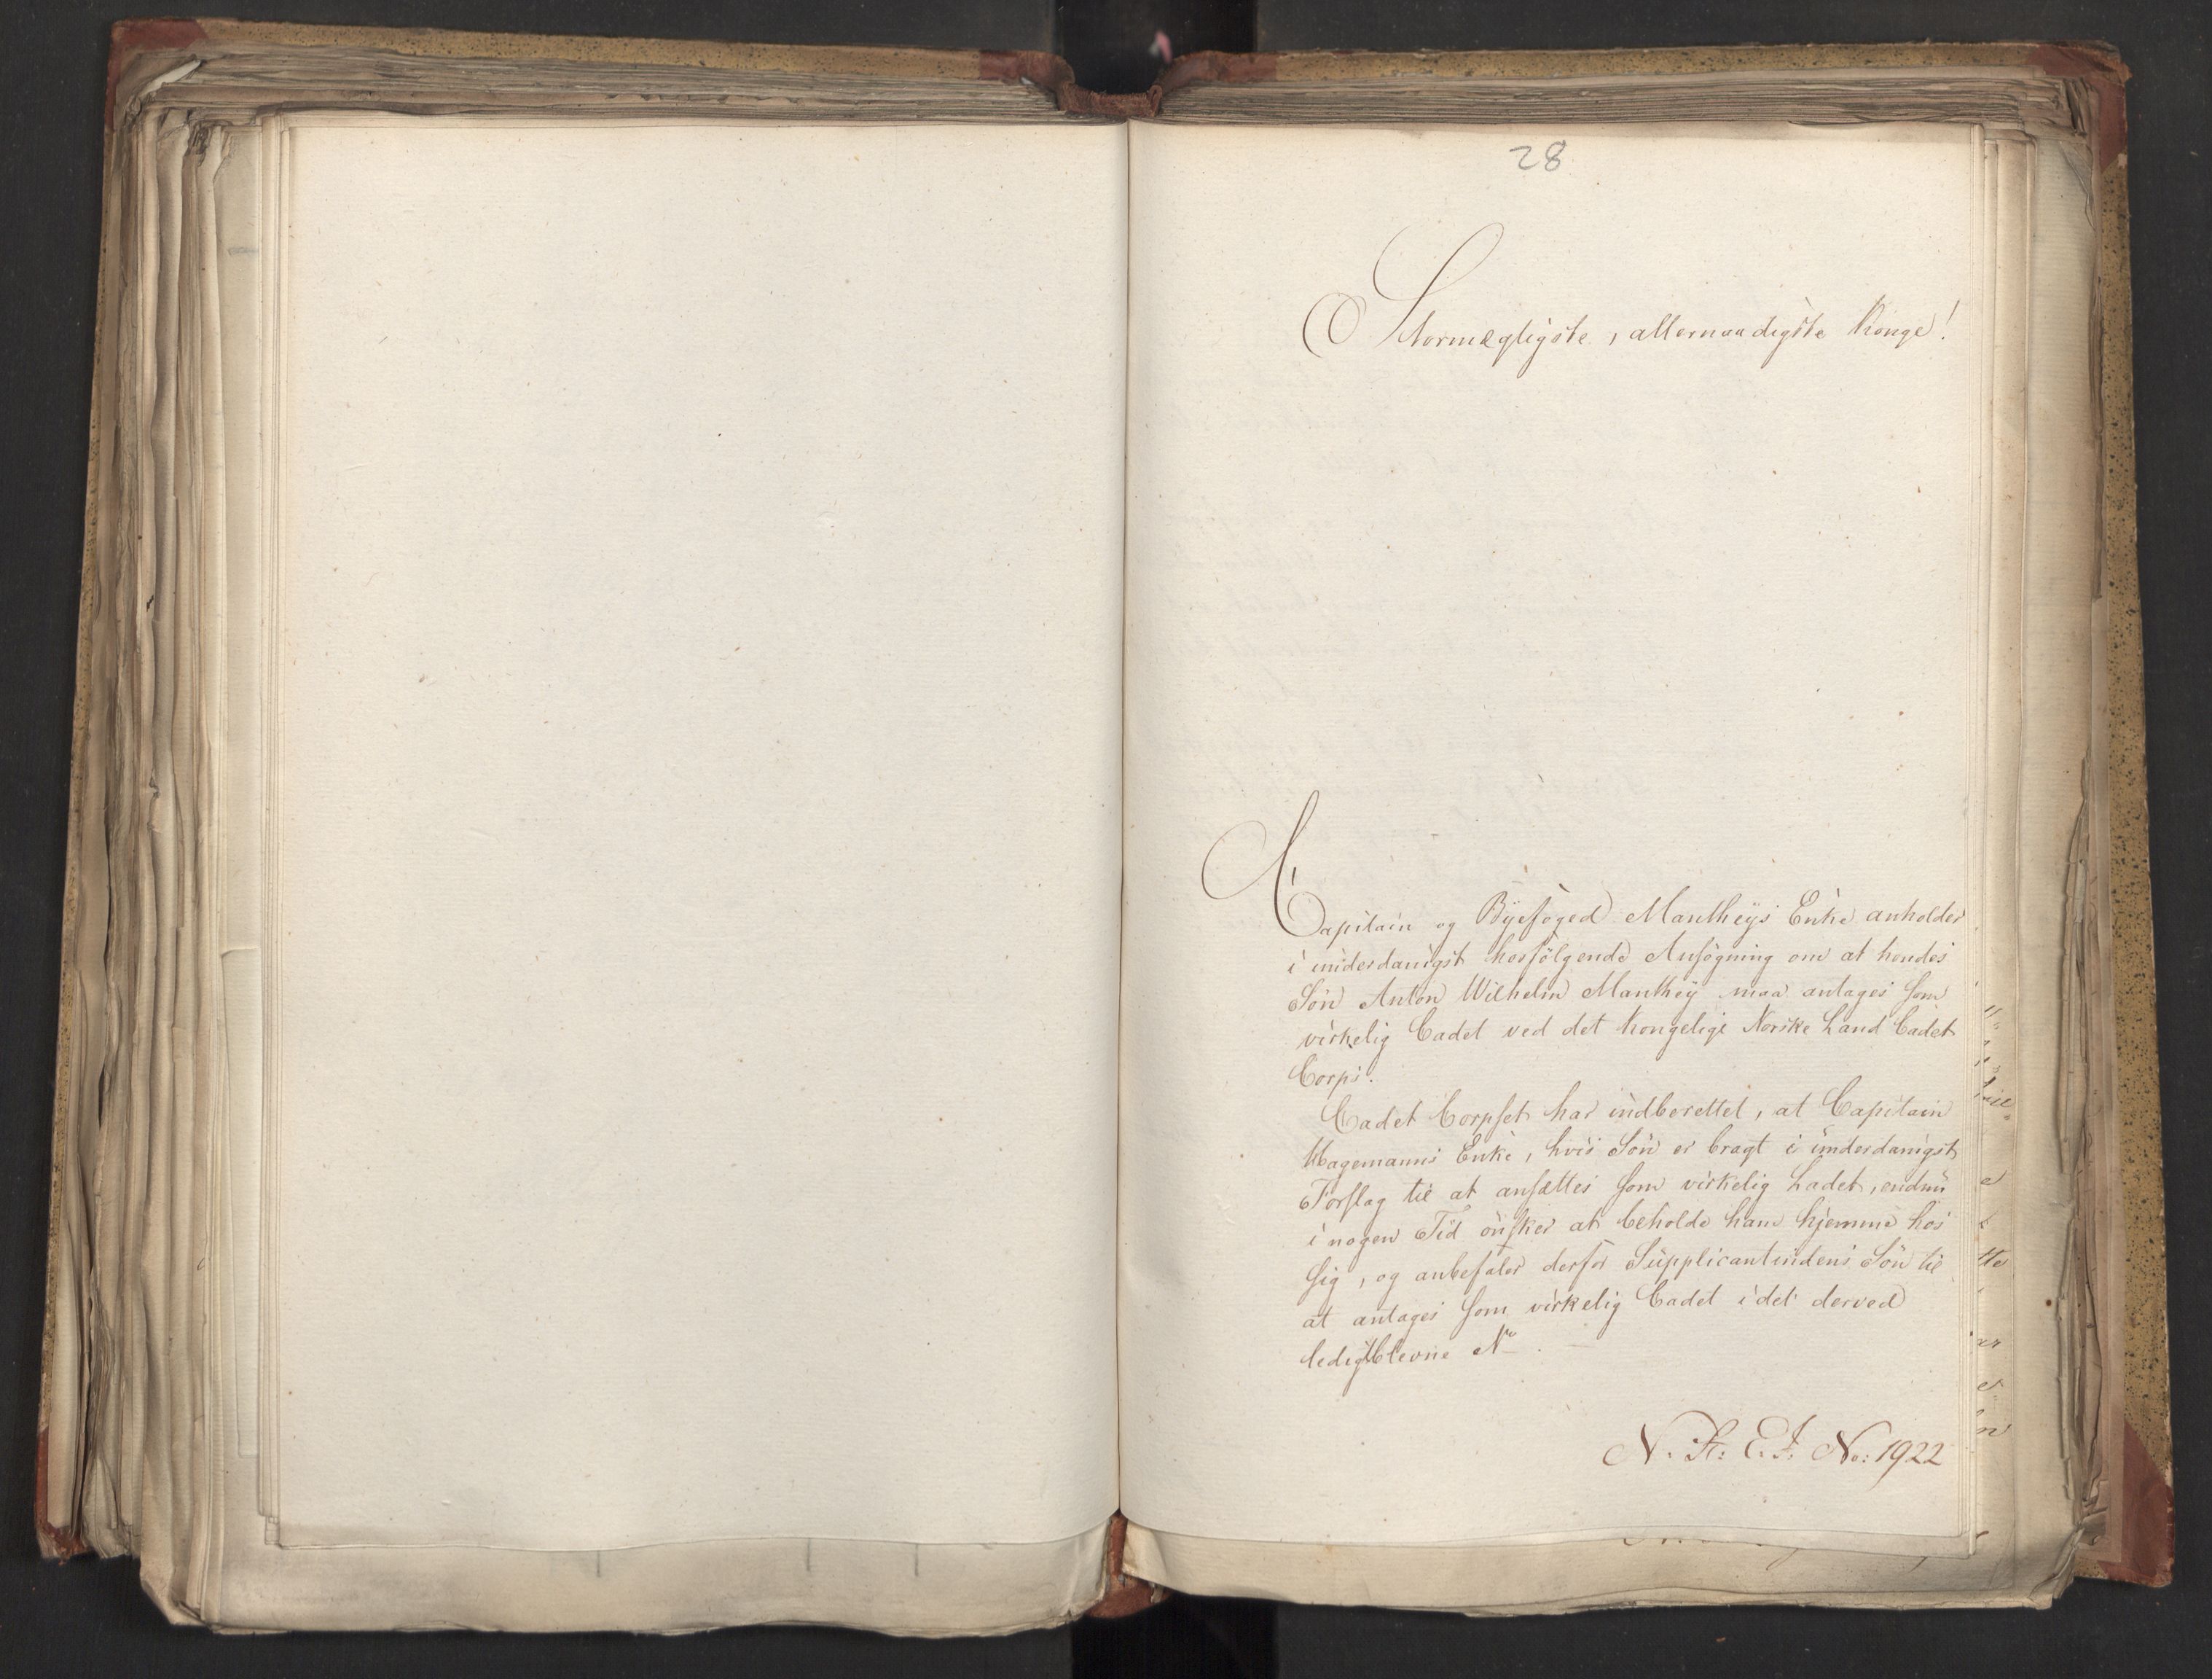 28
Stormægtigste, allernaadigste Konge!
Capitain og Byefoged Mantheys Enke anholder
i underdanigst hosfølgende Ansøgning om at hendes
Søn Anton Wilhelm Manthey maa antages som
virkelig Cadet ved det kongelige Norske Land Cadet
Corps.
Cadet Corpset har indberettet, at Capitain
Hagemanns Enke, hvis Søn er bragt i underdanigst
Forslag til at ansættes som virkelig Cadet, endnu
i nogen Tid ønsker at beholde ham hjemme hos
sig, og anbefaler derfor Supplicantindens Søn til
at antages som virkelig Cadet i det derved
ledigtblevne No.
N. K: E. J: No: 1922